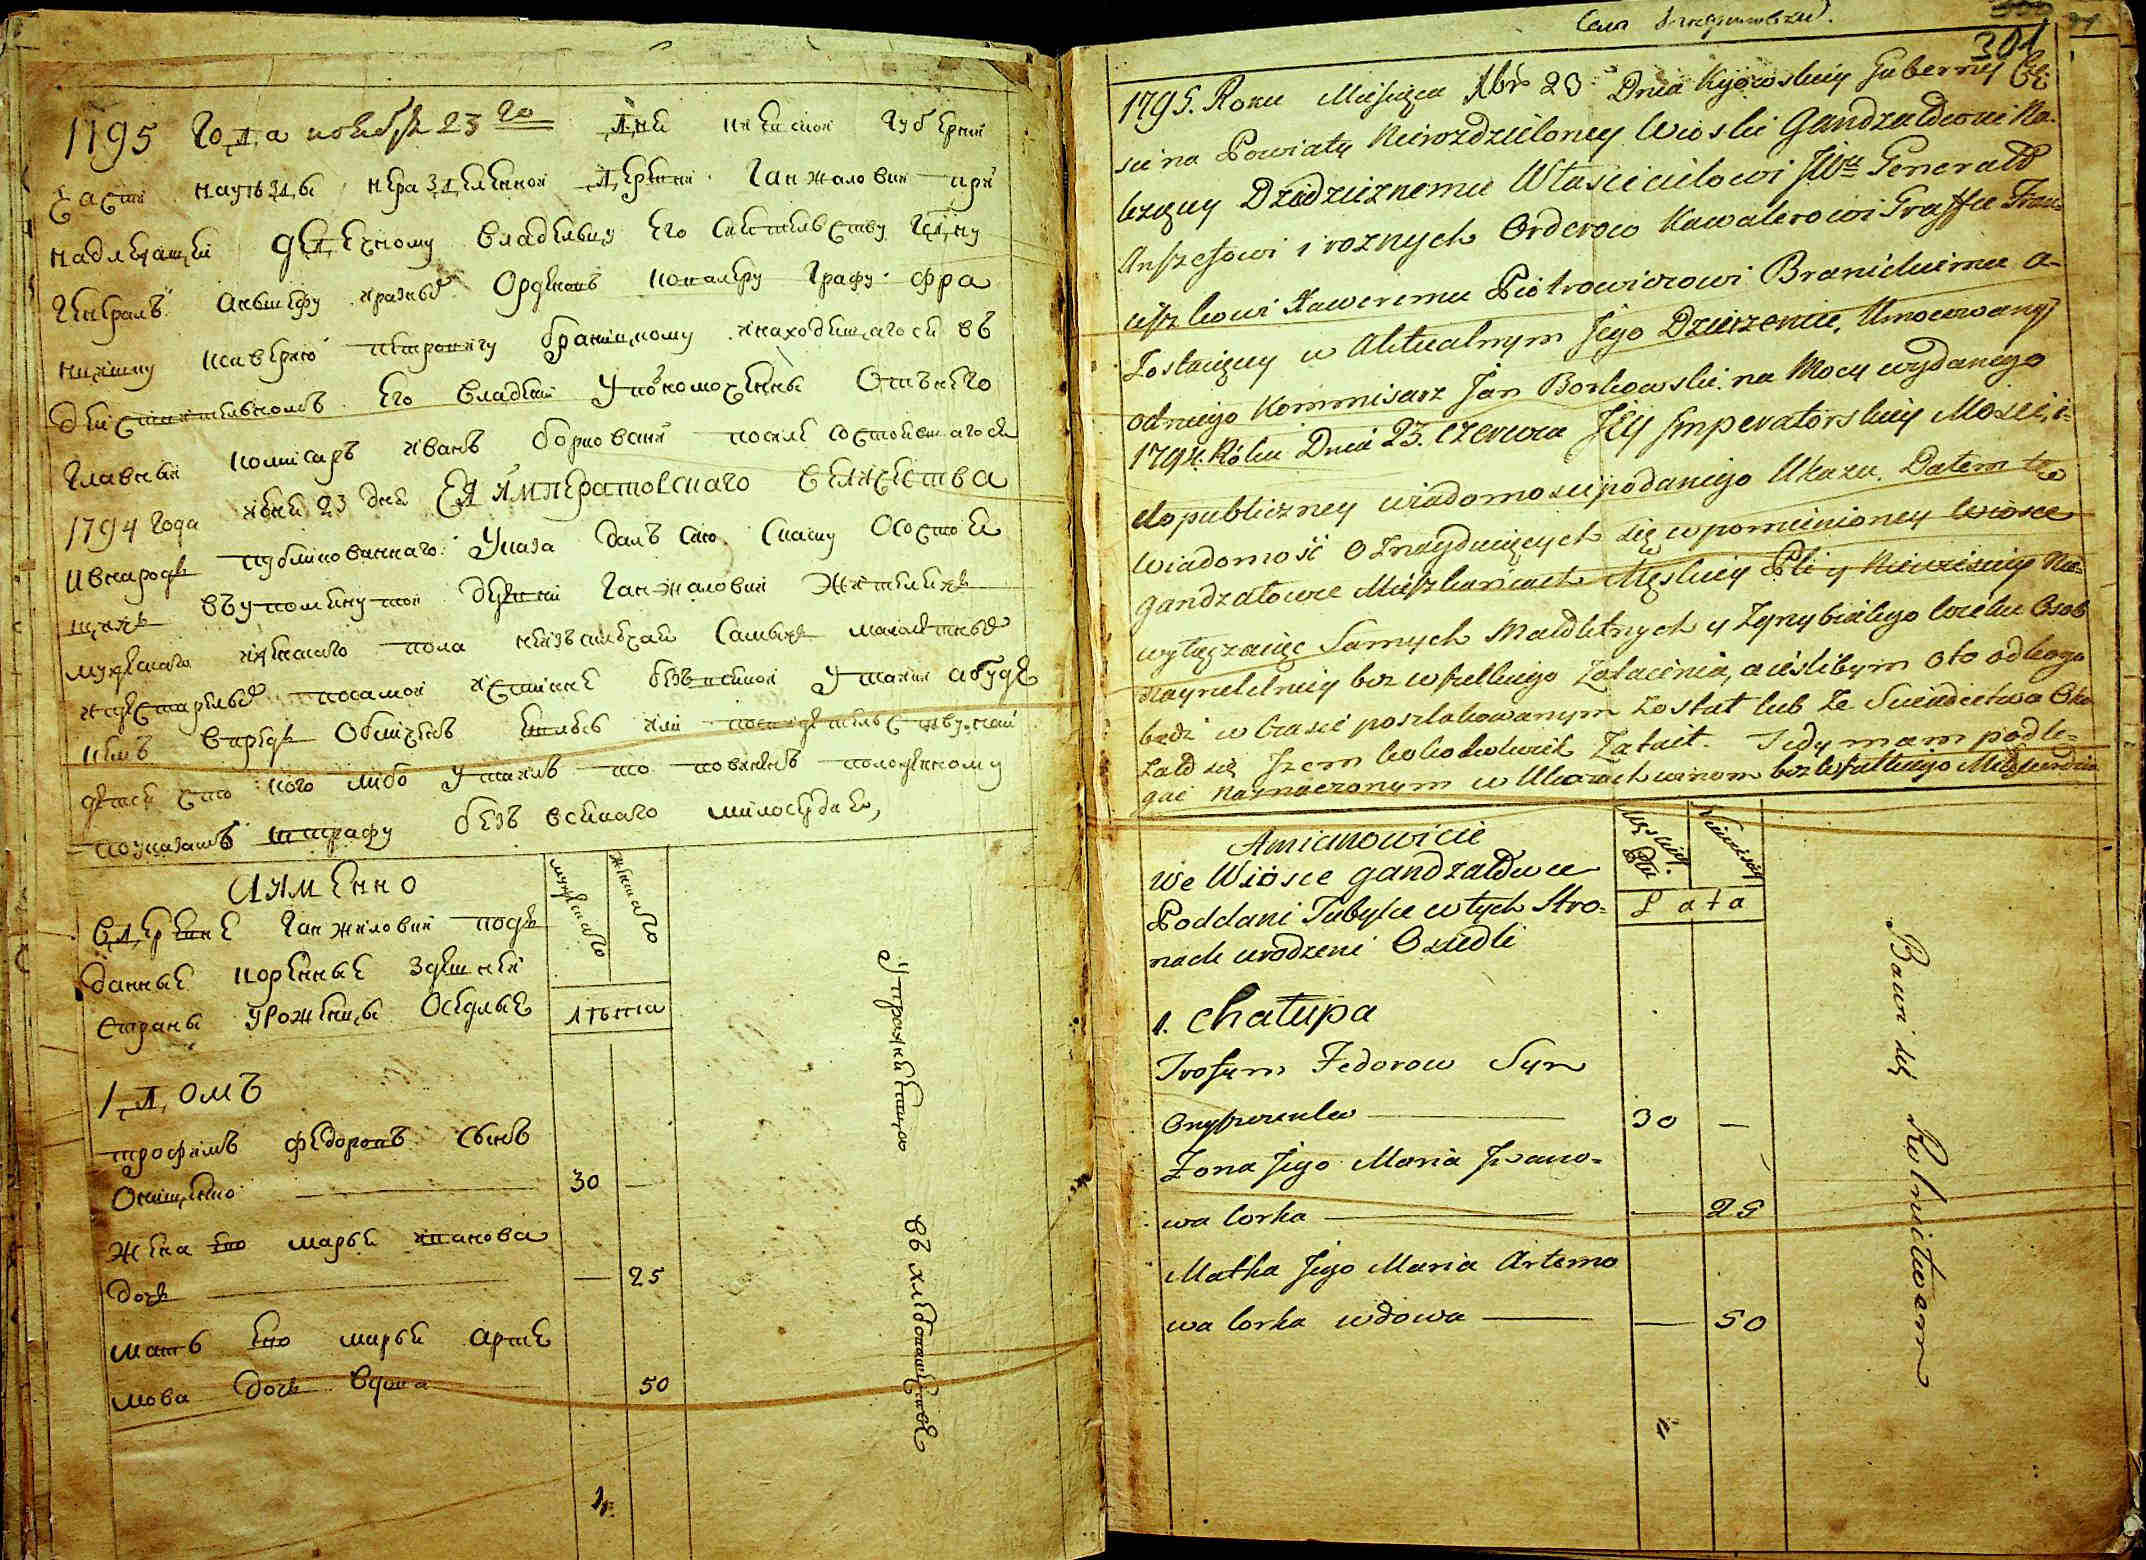 1795 Года ноября 23го дня киевской губернии
части науѣзды нераздѣленной деревни Ганжаловки при
надлежащей дедичному владельцу его сиятельству Гдну
Генералъ аншефу и разныхъ Орденовъ кавалеру Графу фра
нцишку ксаверию петровичу браницкому и находящагося въ
действительномъ его владении Уполномоченны Отънего
главный комисаръ иванъ борковский после состоявшагося
1794 года июня 23 дня ЕЯ ИМПЕРАТОРСКАГО ВЕЛИЧЕСТВА
ивнароде публикованнаго Указа далъ сию скаску Осостоя
щихъ въупомянутой деревни Ганжаловки жителяхъ
мужескаго и женскаго пола неизъключая самыхъ малолетныхъ
и престарелыхъ посамой истинне безъ всякой Утайки абуде
кемъ впредь Обличенъ явлюсь или посвидетельству най
детца что кого либо Утаилъ то повиненъ положенному
поуказамъ штрафу безъ всякаго милосердия,
АИМЕННО
вдеревне Ганжаловки подъ
данные коренные здешней
страны Урожденцы Оседлые
мужескаго
женскаго
лѣта
1 ДОМЪ
трофимъ федоровъ сынъ
Онищенко 30 —
жена его марья иванова
дочь — 25
мать его марья арте
мова дочь вдова — 50
Упражняется
въ хлебопашестве
301
1795. Roku Miesiąca 9br 23 Dnia Kyiowskiey Gubernij Czę
sci na Powiaty Nierozdzieloney Wioski Gandzałowki Na-
lezącey Dziedzicznemu Własicielowi JWu Generało
Anszefowi i roznych Orderow Kawalerowi Graffu Fran-
ciszkowi Xaweremu Piotrowiczowi Branickiemu a-
Zostaiącey w Aktualnym Jego Dzierzeniu, Umocowany
odniego Kommisarz Jan Borkowski na Mocy wydanego
1794. Roku Dnia 23. Czerwca Jey Imperatorskiey Mosci, i-
do publiczney wiadomosci podanego Ukazu. Dałem tę
wiadomość o Znayduiących się wpomienioney Wiosce
Gandzałowce Mieszkancach Męskiey Płci y Niewiesciey nie-
wyłączaiąc Samych Małoletnych y Zgrzybiałego wieku Osob
naynzetelniey bez wszelkiego Zataienia, a iesliby m oto odkogo
bądz w Czasie poszlakowanym został lub ze Swiadectwa Oka
zało się Izem kogokolwiek Zataił. Tedy mam podle-
gać naznaczonym w Ukazach winom bez wszelkiego Miłosierdzia
Amianowicie
We Wiosce Gandzałowce
Poddani Tubylce wtych Stro-
nach urodzeni Osiedli
Męskiey Płci
Niewiesciey
Lata
1. Chałupa
Trofym Fedorow Syn
Onyszczenko 30 —
Żona Jego Maria Iwano-
wa Corka — 25
Matka Jego Maria Artemo
wa Corka wdowa — 50
Bawi się Rolnictwem